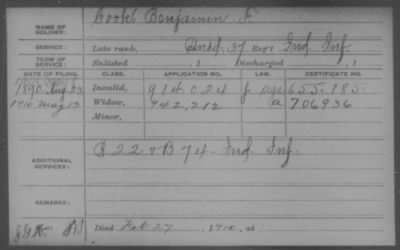 Cook Benjamin F.
NAME OF SOLDIER:
SERVICE: Late rank, 37 Reg't Ind. Inf.
TERM OF SERVICE: Enlisted , 1 Discharged , 1
DATE OF FILING. CLASS. APPLICATION NO. LAW. CERTIFICATE NO.
1890 Aug 23 Invalid, 914.024 655.185
1910 May 13 Widow, 942,212 706936
Minor,
ADDITIONAL SERVICES: 22 & B 74. Ind. Inf.
REMARKS:
Died Feb 27 , 1910, at